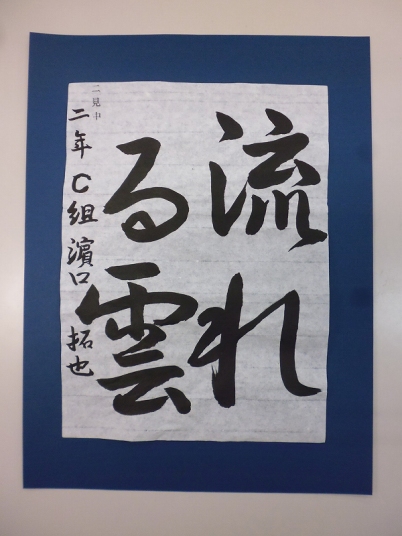 流れ
る雲
二見中
二年C組 濵口 拓也